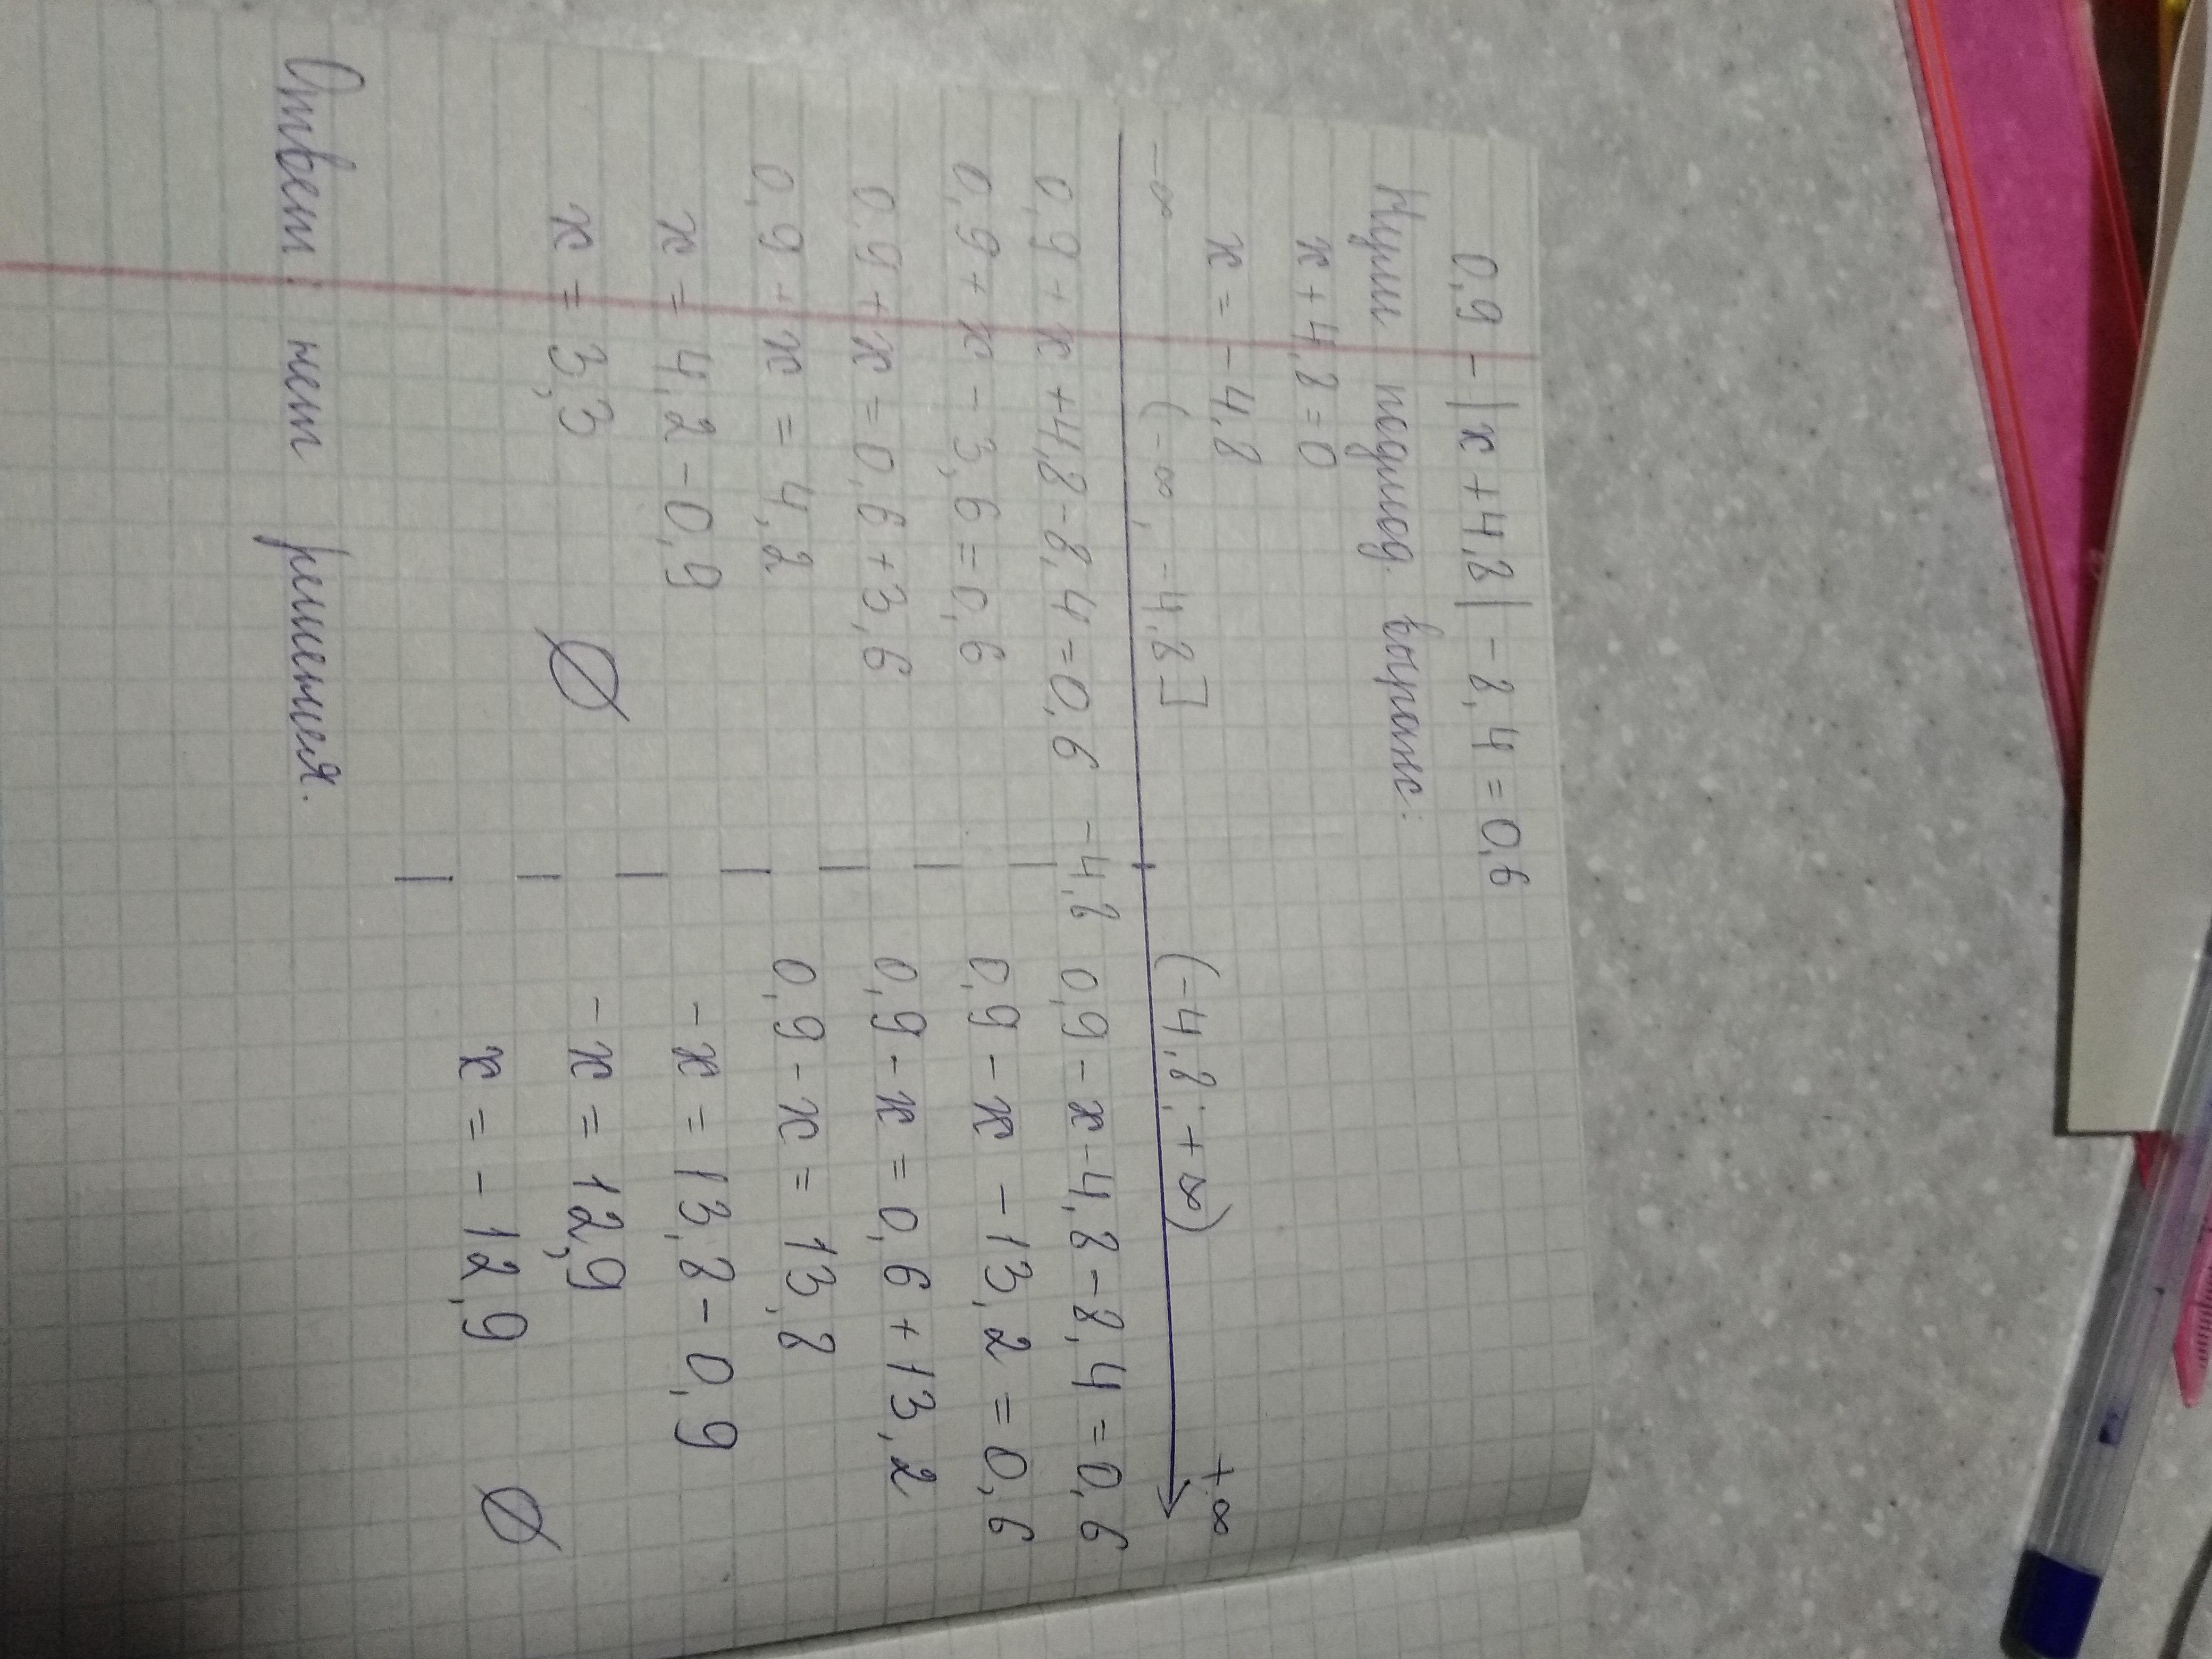 0,9 - |x + 4,8| - 8,4 = 0,6
Нули подмод. выраж.:
x + 4,8 = 0
x = - 4,8
-∞ (-∞, -4,8] (-4,8; +∞) +∞
-4,8
0,9 + x + 4,8 - 8,4 = 0,6
0,9 + x - 3,6 = 0,6
0,9 + x = 0,6 + 3,6
0,9 + x = 4,2
x = 4,2 - 0,9
x = 3,3 ∅
0,9 - x - 4,8 - 8,4 = 0,6
0,9 - x - 13,2 = 0,6
0,9 - x = 0,6 + 13,2
0,9 - x = 13,8
- x = 13,8 - 0,9
- x = 12,9
x = - 12,9 ∅
Ответ: нет решения.